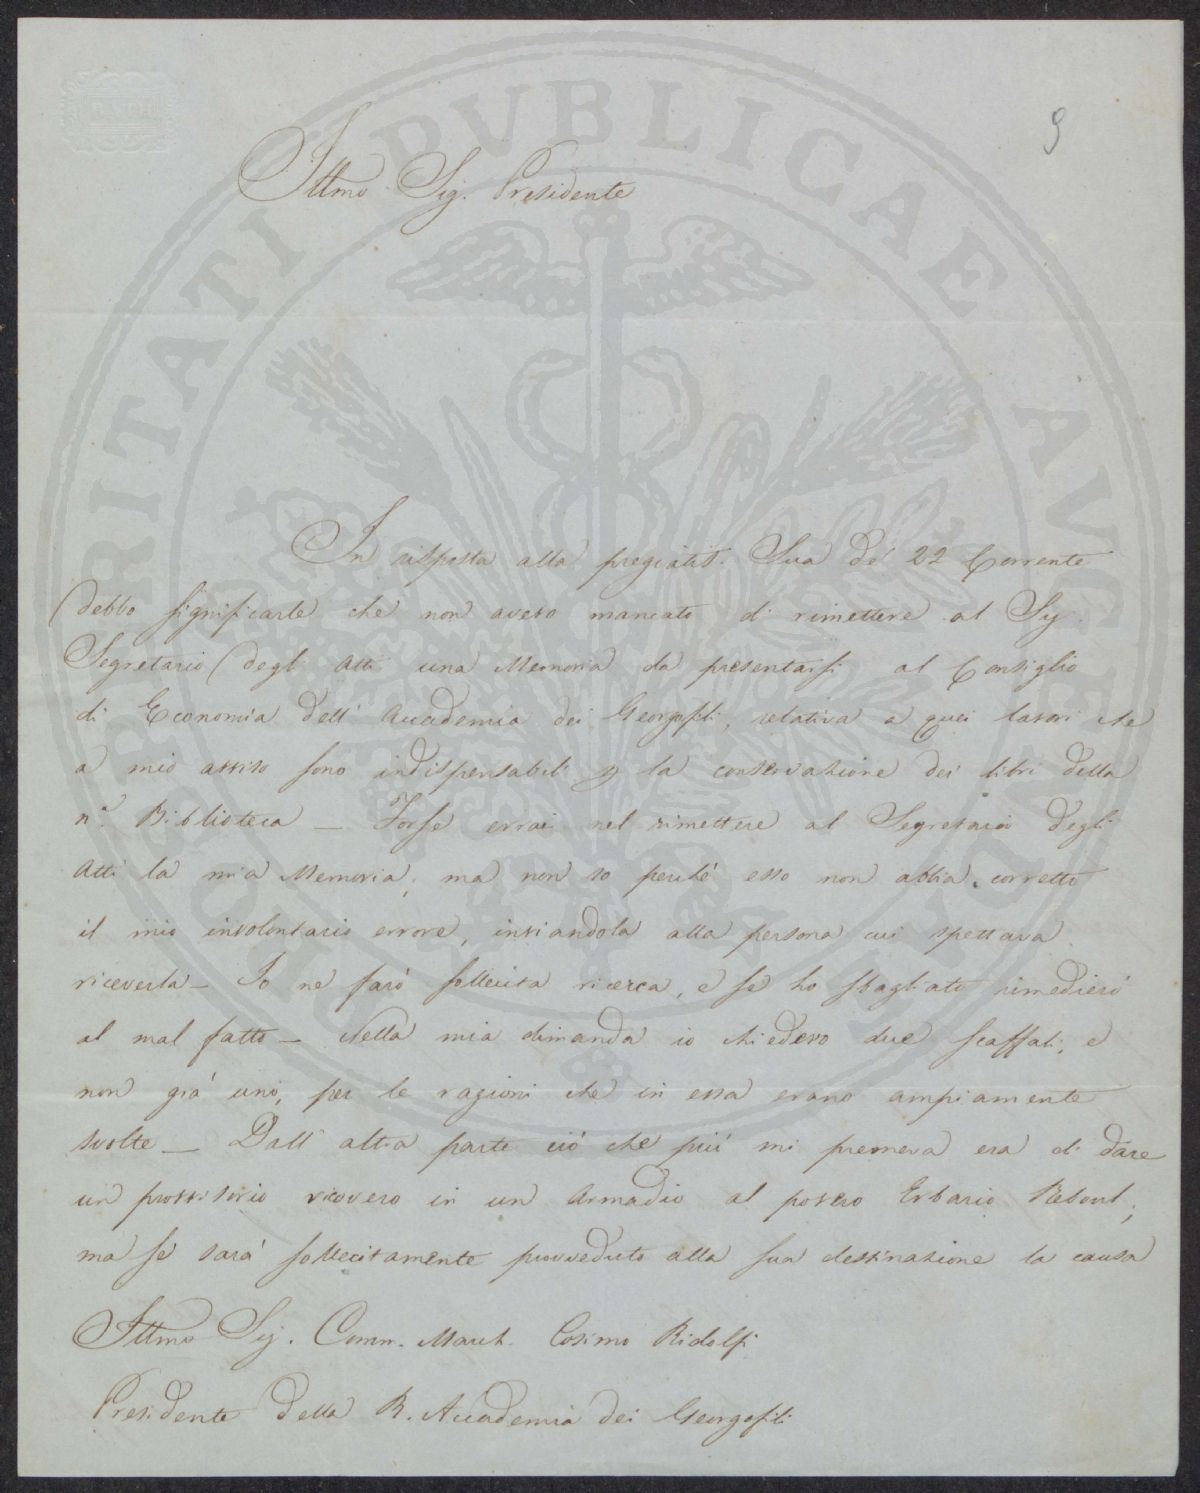 9
Illmo Sig. Presidente
In risposta alla pregiatis. Sua de' 22 Corrente
debbo significarle che non avevo mancato di rimettere al Sig.
Segretario degli Atti una Memoria da presentarsi al Consiglio
di Economia dell' Accademia dei Georgofili, relativa a quei lavori che
a mio avviso sono indispensabili p la conservazione dei libri della
n.a Biblioteca — Forse errai nel rimettere al Segretario degli
Atti la mia Memoria, ma non so perchè esso non abbia corretto
il mio involontario errore, inviandola alla persona cui spettava
riceverla — Io ne farò sollecita ricerca, e se ho sbagliato rimedierò
al mal fatto — Nella mia dimanda io chiedevo due scaffali, e
non già uno, per le ragioni che in essa erano ampiamente
svolte — Dall' altra parte ciò che più mi premeva era di dare
un provvisorio ricovero in un Armadio al povero Erbario Reboul;
ma se sarà sollecitamente provveduto alla sua destinazione la causa
Illmo Sig. Comm. March. Cosimo Ridolfi
Presidente della R. Accademia dei Georgofili
PROSPERITATI PVBLICAE AVGENDAE